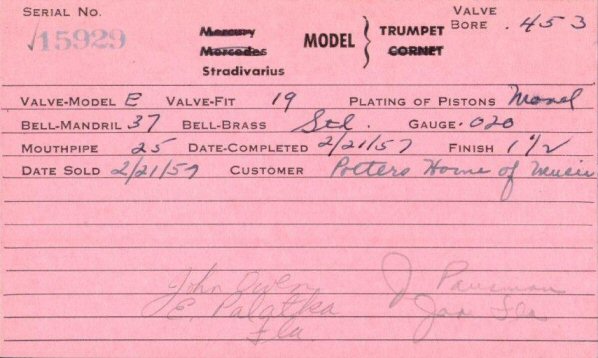 SERIAL NO. 15929
Mercury
Mercedes
Stradivarius
MODEL
TRUMPET
CORNET
VALVE BORE .453
VALVE-MODEL E VALVE-FIT 19 PLATING OF PISTONS Monel
BELL-MANDRIL 37 BELL-BRASS Std. GAUGE .020
MOUTHPIPE 25 DATE-COMPLETED 2/21/57 FINISH 1 1/2
DATE SOLD 2/21/57 CUSTOMER Potters Home of Music
John Owen
E. Palatka
Fla
J
Jax Fla